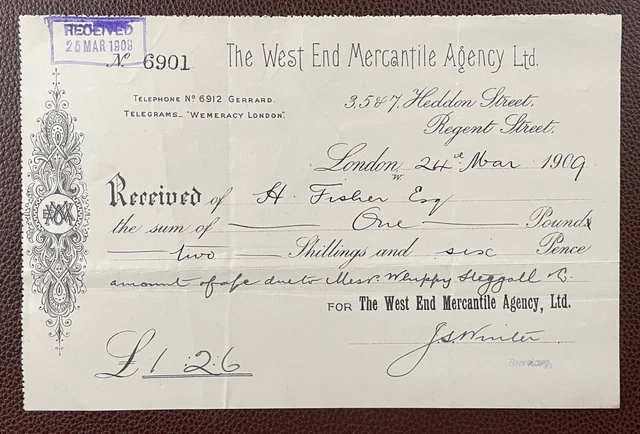 RECEIVED
25 MAR 1909
No 6901
The West End Mercantile Agency Ltd.
TELEPHONE No 6912 GERRARD.
TELEGRAMS_ "WEMERACY LONDON".
3, 5 & 7, Heddon Street,
Regent Street.
London, W. 24th Mar 1909
Received of H. Fisher Esq
the sum of One Pound
two Shillings and six Pence
amount of a/c due to Messrs Whippy Steggall & Co
FOR The West End Mercantile Agency, Ltd.
J S Winter
Secretary.
£1.2.6